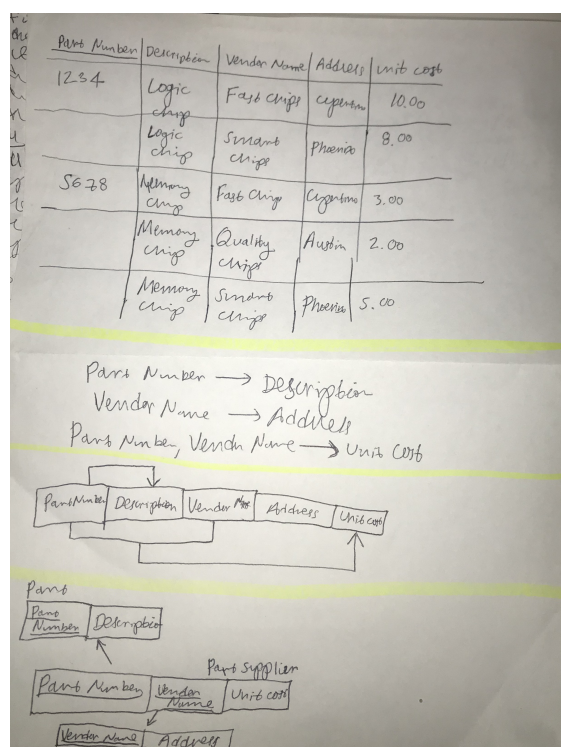 Part Number Description Vendor Name Address unit cost
1234 Logic chip Fast chips cupertino 10.00
Logic chip Smart chips Phoenix 8.00
5678 Memory chip Fast Chip Cupertino 3.00
Memory chip Quality chips Austin 2.00
Memory chip Smart chips Phoenix 5.00
Part Number → Description
Vendor Name → Address
Part Number, Vendor Name → Unit Cost
Part Number Description Vendor Name Address Unit cost
Part
Part Number Description
Part Supplier
Part Number Vendor Name Unit cost
Vendor Name Address